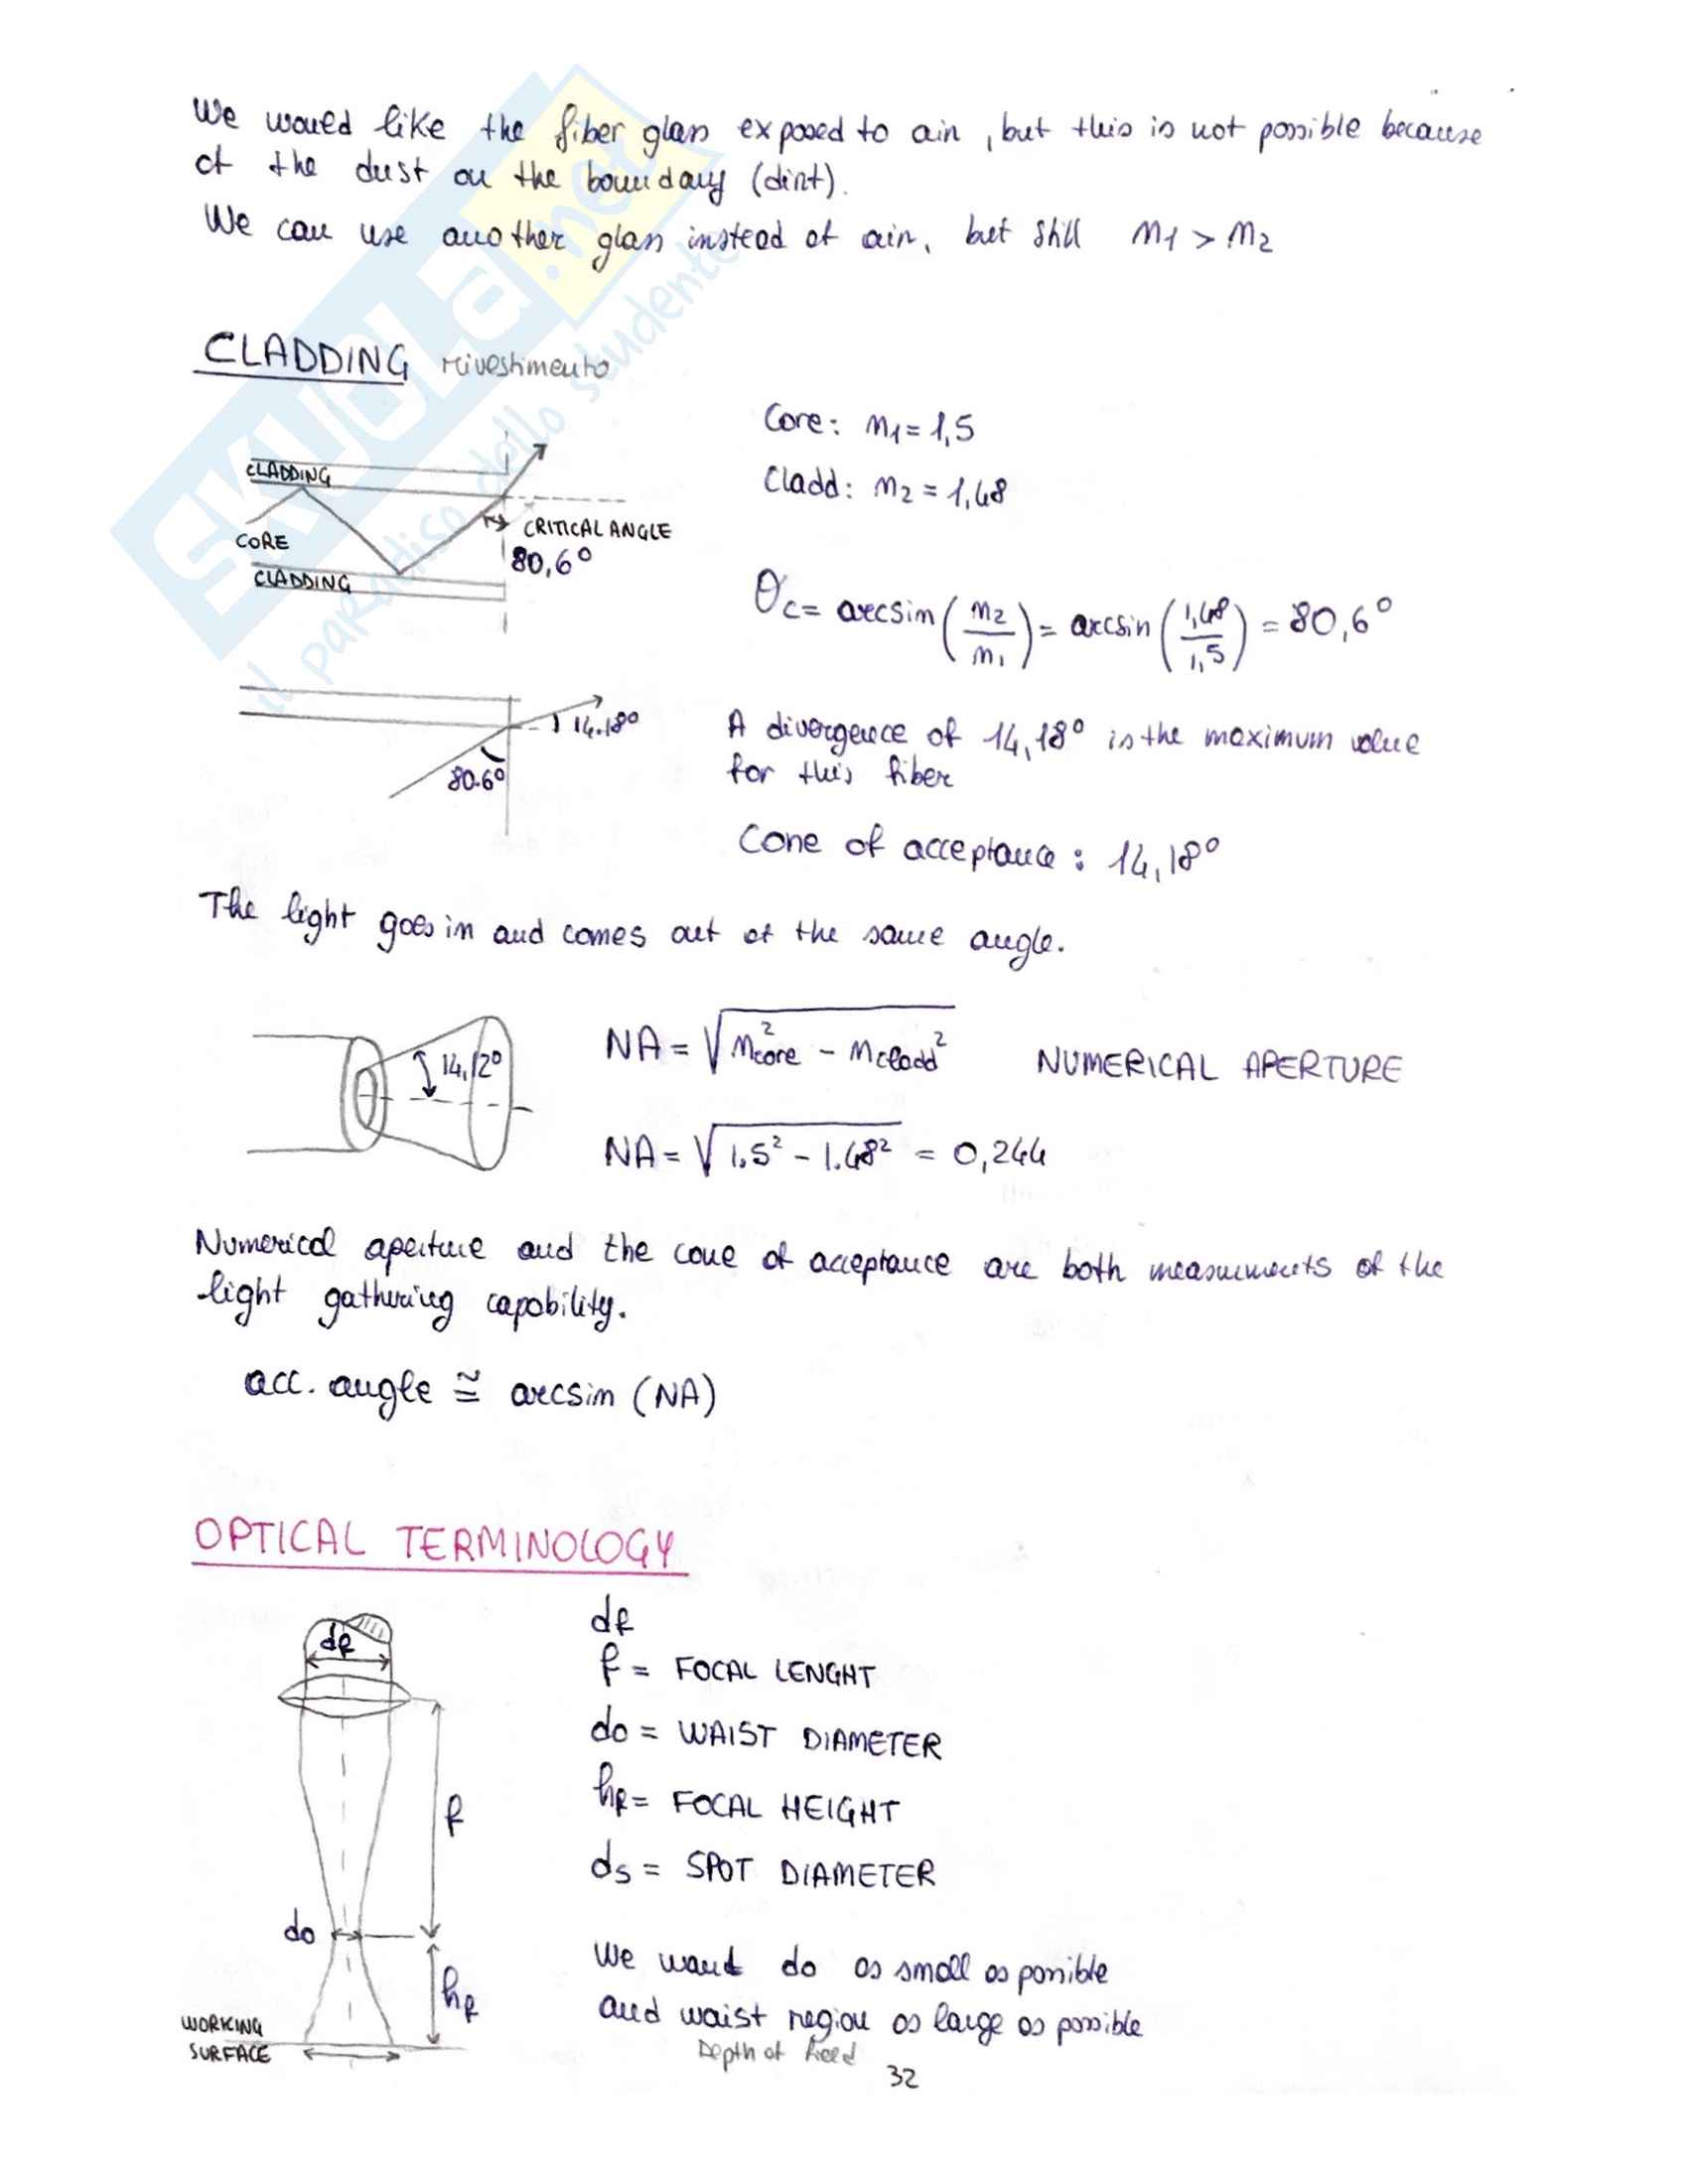 We would like the fiber glass exposed to air, but this is not possible because
of the dust on the boundary (dirt).
We can use another glass instead of air, but still n1 > n2
CLADDING rivestimento
CLADDING
CORE
CLADDING
CRITICAL ANGLE
80,6°
Core: n1 = 1,5
Cladd: n2 = 1,48
θc = arcsin (n2/n1) = arcsin (1,48/1,5) = 80,6°
14.18°
80.6°
A divergence of 14,18° is the maximum value
for this fiber
Cone of acceptance: 14,18°
The light goes in and comes out at the same angle.
14,12°
NA = √(ncore² - ncladd²) NUMERICAL APERTURE
NA = √(1.5² - 1.48²) = 0,244
Numerical aperture and the cone of acceptance are both measurments of the
light gathering capability.
acc. angle ≅ arcsin (NA)
OPTICAL TERMINOLOGY
df
f
do
hf
WORKING
SURFACE
df
f = FOCAL LENGHT
do = WAIST DIAMETER
hf = FOCAL HEIGHT
ds = SPOT DIAMETER
We want do as small as possible
and waist region as large as possible
Depth of field
32
SKUOLA.net
il paradiso dello studente